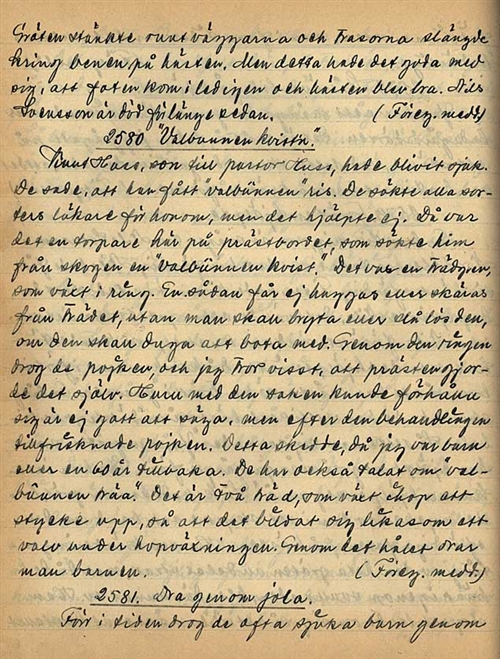 Gröten stänkte runt väggarna och trasorna slängde
kring benen på hästen. Men detta hade det goda med
sig, att foten kom i led igen och hästen blev bra. Nils
Svensson är död för länge sedan. (Föreg. medd.)
2580 "Valbunnen kvist'n."
Knut Hass, son till pastor Hass, hade blivit sjuk.
De sade, att han fått "valbünnen" ris. De sökte alla sor-
ters läkare för honom, men det hjälpte ej. Då var
det en torpare här på prästbordet, som sökte hem
från skogen en "valbünnen kvist." Det var en trädgren,
som växt i ring. En sådan får ej huggas eller skäras
från trädet, utan man skall bryta eller slå lös den,
om den skall duga att bota med. Genom den ringen
drog de pojken, och jag tror visst, att prästen gjor-
de det själv. Huru med den saken kunde förhålla
sig är ej gott att säga, men efter den behandlingen
tillfrisknade pojken. Detta skedde, då jag var barn
eller en 60 år tillbaka. De har också talat om "val-
bünnen träa." Det är två träd, som växt ehop ett
stycke upp, så att det bildat sig likasom ett
valv under hopväxningen. Genom det hålet drar
man barnen. (Föreg. medd.)
2581. Dra genom jola.
Förr i tiden drog de ofta sjuka barn genom